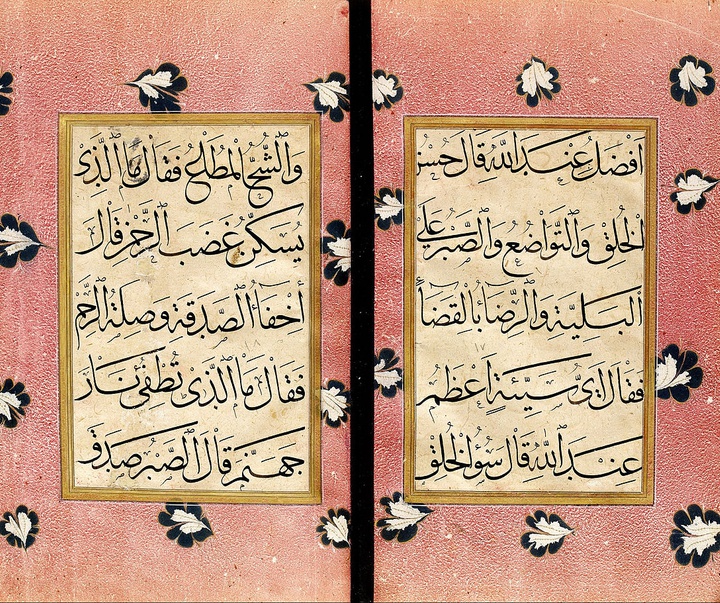 افضل عند الله قال حسن
الخلق والتواضع والصبر على
البلية والرضاء بالقضاء
فقال اي سيئة اعظم
عند الله قال سوء الخلق
والشح المطاع فقال ما الذي
يسكن غضب الرحمن قال
أخفاء الصدقة وصلة الرحم
فقال ما الذي تطفئ نار
جهنم قال الصبر صدق